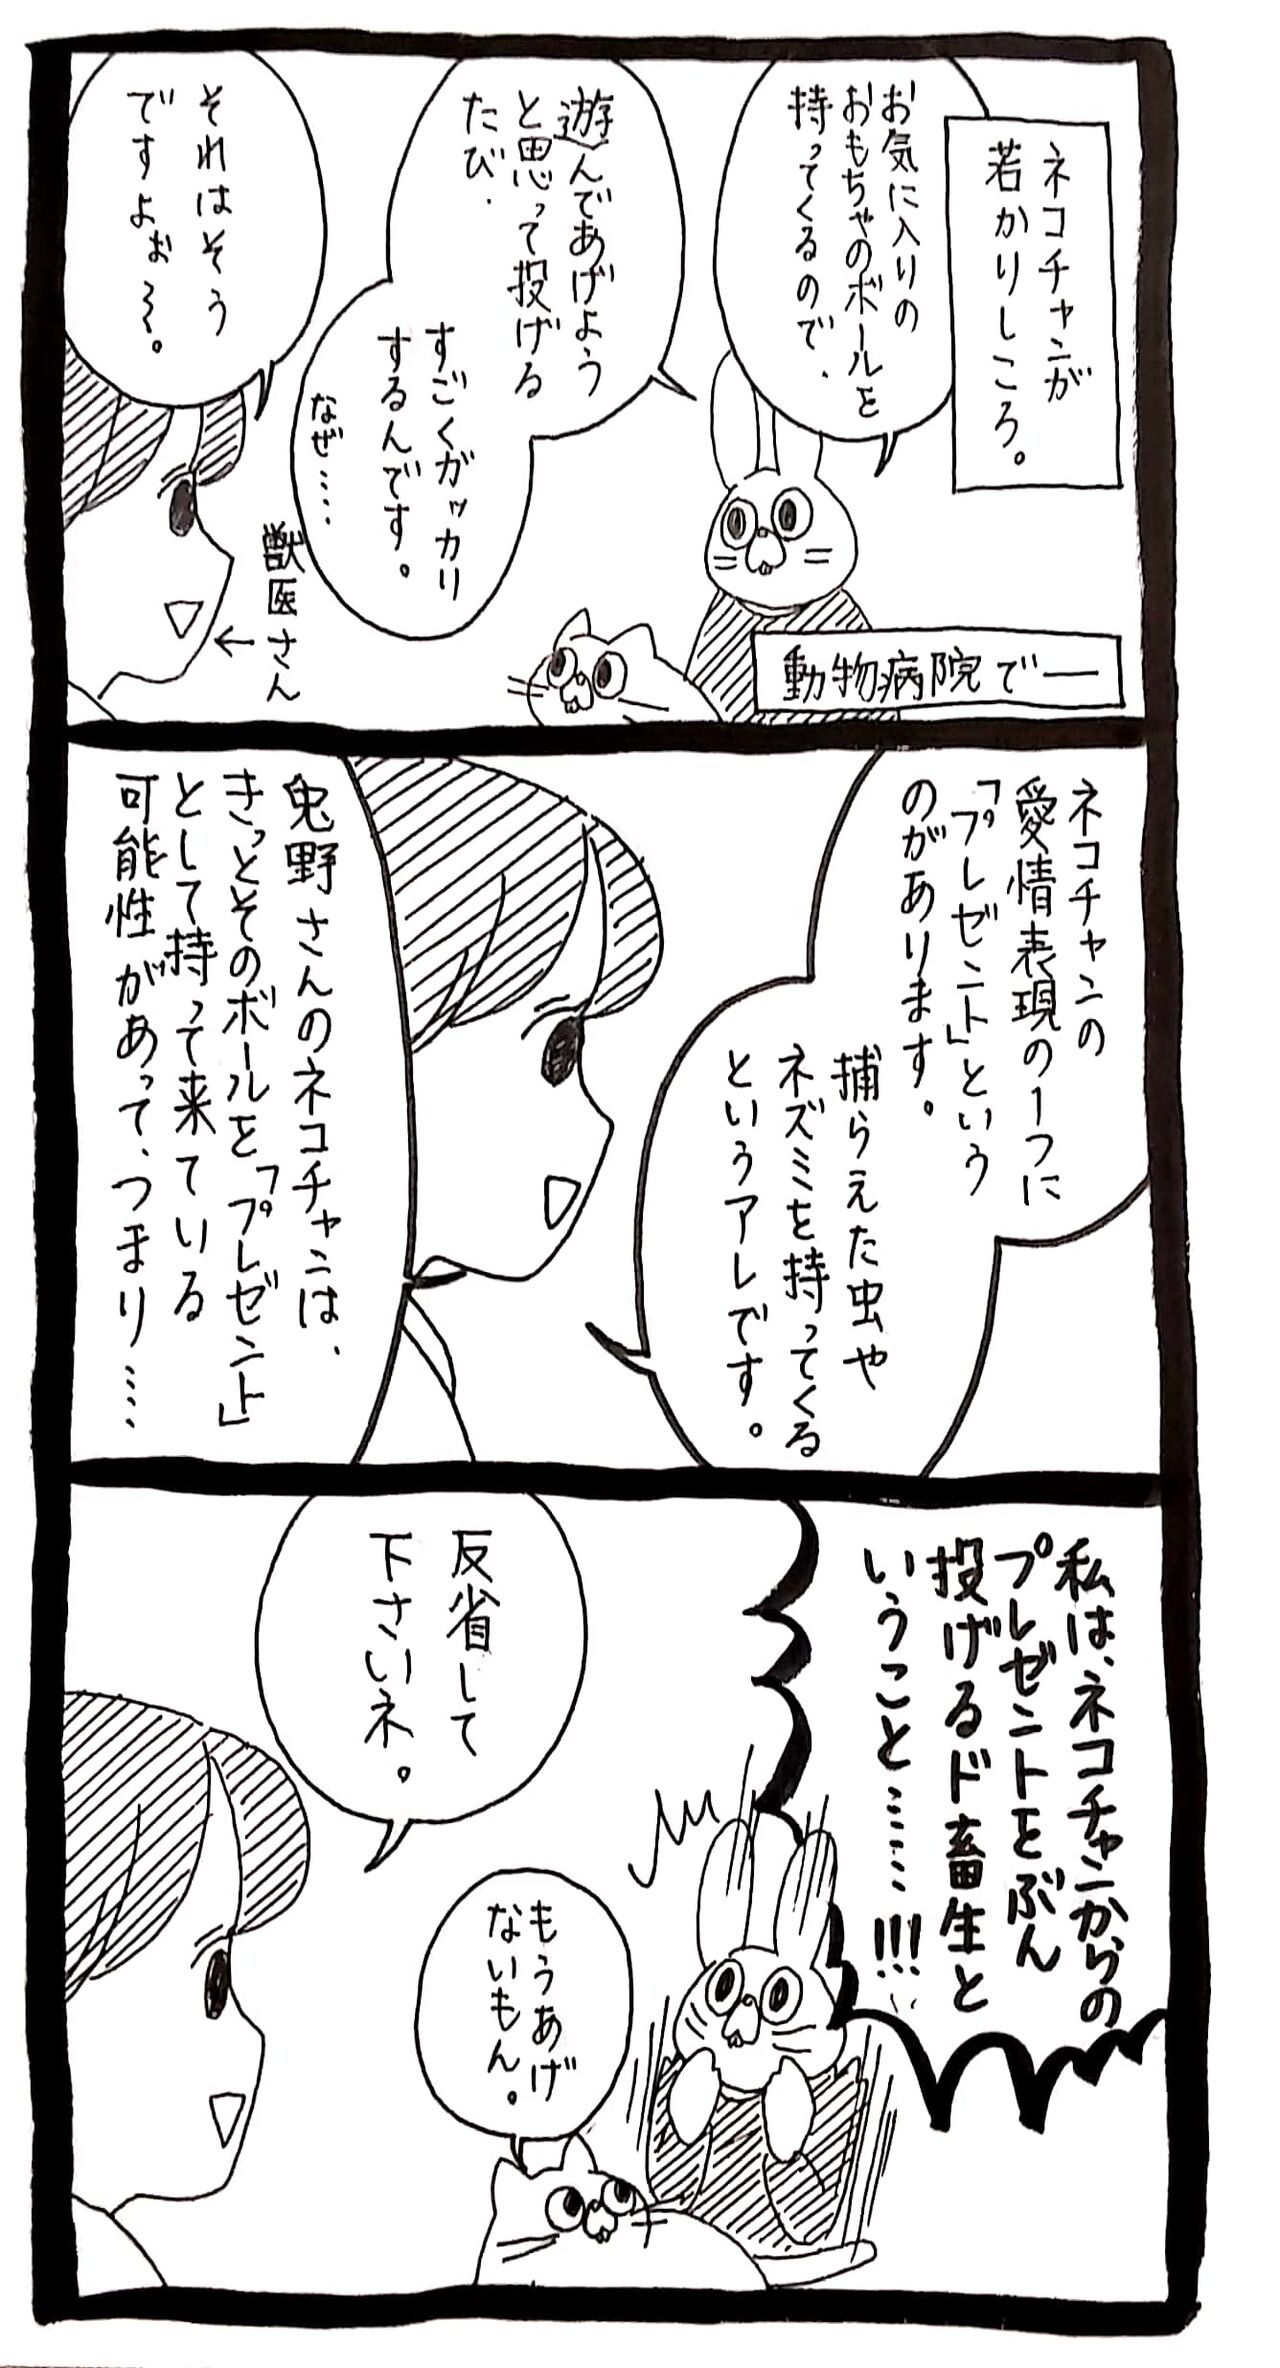 ネコチャンが
若かりしころ。
動物病院で―
お気に入りの
おもちゃのボールを
持ってくるので、
遊んであげよう
と思って投げる
たび、
すごくガッカリ
するんです。
なぜ……
それはそう
ですよぉ〜。
獣医さん
←
ネコチャンの
愛情表現の1つに
「プレゼント」という
のがあります。
捕らえた虫や
ネズミを持ってくる
というアレです。
兎野さんのネコチャンは、
きっとそのボールを「プレゼント」
として持って来ている
可能性があって、つまり……
私は、ネコチャンからの
プレゼントをぶん
投げるド畜生と
いうこと……!!!
反省して
下さいネ。
もうあげ
ないもん。